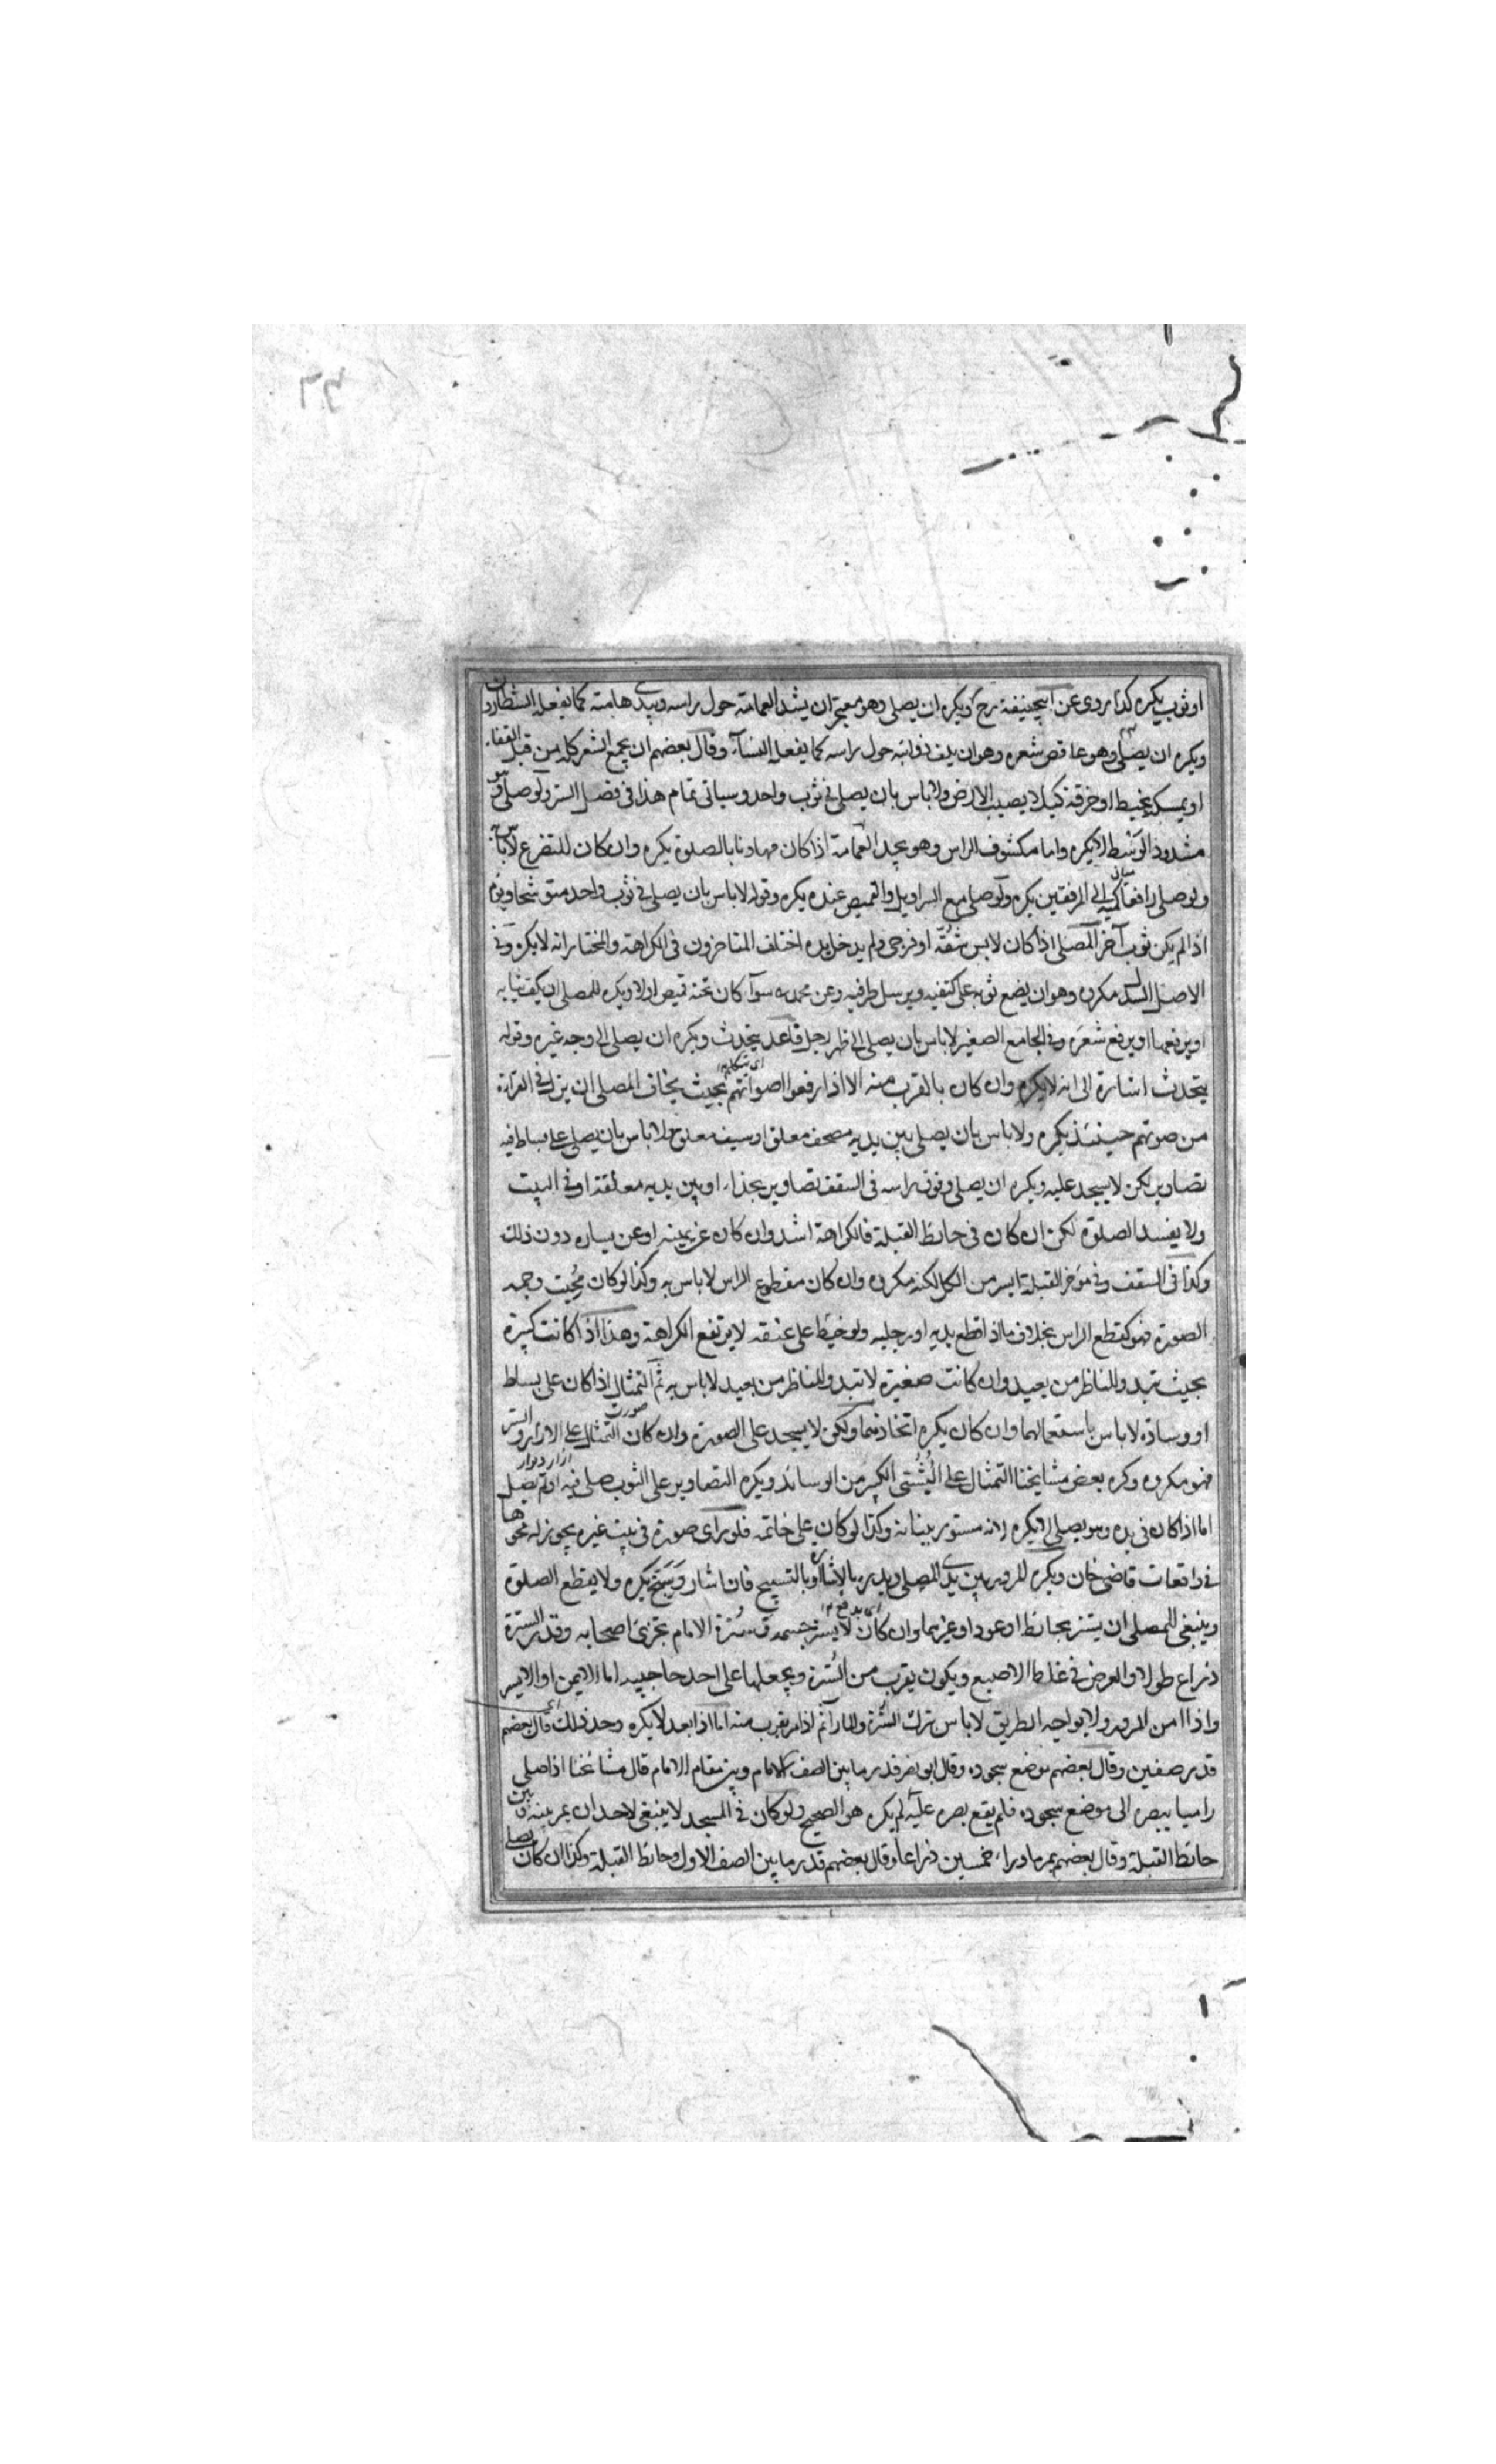 او ثوب يكره كذا روى عن ابيحنيفة رح ويكره ان يصلى وهو معتجر ان يشد العمامة حول راسه ويبدى هامته كما يفعله الشطارون
ويكره ان يصلى وهو عاقص شعره وهو ان يلف ذوائبه حول راسه كما يفعله النساء وقال بعضهم ان يجمع الشعر كله من قبل القفاء
او يمسكه بخيط او خرقة كيلا يصيب الارض ولا باس بان يصلى فى ثوب واحد وسياتى تمام هذا فى فصل الستر ولو صلى وهو
مشدود الوسط لا يكره واما مكشوف الراس وهو يجد العمامة اذا كان تهاونا بالصلوة يكره وان كان للتضرع لا باس به
ولو صلى رافعا كميه الى المرفقين يكره ولو صلى مع السراويل والقميص عنده يكره وقوله لا باس بان يصلى فى ثوب واحد متوشحا
اذا لم يكن ثوب آخر المصلى اذا كان لابس شقة او فرجى ولم يدخل يده اختلف المتاخرون فى الكراهة والمختار انه لا يكره وفى
الاصل السدل مكروه وهو ان يضع ثوبه على كتفيه ويرسل طرفيه وعن محمد سوآء كان تحته قميص او لا ويكره للمصلى ان يكف ثيابه
او يرفعها او يرفع شعره وفى الجامع الصغير لا باس بان يصلى الى ظهر رجل قاعد يتحدث ويكره ان يصلى الى وجه غيره وقوله
يتحدث اشارة الى انه لا يكره وان كان بالقرب منه الا اذا رفعوا اصواتهم بحيث يخاف المصلى ان يزل فى القراءة
من صوتهم حينئذ يكره ولا باس بان يصلى بين يديه مصحف معلق او سيف معلق ولا باس بان يصلى على بساط فيه
تصاوير لكن لا يسجد عليه ويكره ان يصلى وفوق راسه فى السقف تصاوير بحذاءه او بين يديه معلقة او فى البيت
ولا يفسد الصلوة لكن ان كان فى حائط القبلة فالكراهة اشد وان كان عن يمينه او عن يساره دون ذلك
وكذا فى السقف وفى مؤخر القبلة ايسر من الكل لكنه مكروه وان كان مقطوع الراس لا باس به وكذا لو كان محيت وجه
الصورة فهو كقطع الراس بخلاف ما اذا قطع يديه او رجليه ولو خيط على عنقه لا يرتفع الكراهة وهذا اذا كانت كبيرة
بحيث تبدو للناظر من بعيد وان كانت صغيرة لا تبدو للناظر من بعيد لا باس به ثم التمثال اذا كان على بساط
او وسادة لا باس باستعمالهما وان كان يكره اتخاذهما ولكن لا يسجد على الصورة وان كان التمثال على الازار والستر
فهو مكروه وكره بعض مشايخنا التمثال على البشتى الكبير من الوسائد ويكره التصاوير على الثوب صلى فيه او لم يصل
اما اذا كان فى يده وهو يصلى لا يكره لانه مستور بثيابه وكذا لو كان على خاتمه فلو راى صورة فى بيت غيره يجوز له محوها
فى واقعات قاضى خان ويكره المرور بين يدى المصلى ويدرء بالاشارة او بالتسبيح فان اشار وسبح يكره ولا يقطع الصلوة
وينبغى للمصلى ان يستتر بحائط او عود او غيرهما وان كان لا يستر جسمه سترة الامام تجزئ اصحابه وقدر السترة
ذراع طولا والعرض فى غلظ الاصبع ويكون يقرب من السترة ويجعلها على احد حاجبيه اما الايمن او الايسر
واذا امن المرور ولا يواجه الطريق لا باس بترك السترة والمار آثم اذا مر بقرب منه اما اذا بعد لا يكره وحد ذلك قال بعضهم
قدر صفين وقال بعضهم موضع سجوده وقال ابو نصر قدر ما بين الصف الامام وبين مقام الامام قال مشائخنا اذا صلى
راميا ببصره الى موضع سجوده فلم يقع بصره عليه لم يكره هو الصحيح ولو كان فى المسجد لا ينبغى لاحد ان يمر بينه وبين
حائط القبلة وقال بعضهم يمر ما وراء خمسين ذراعا وقال بعضهم قدر ما بين الصف الاول وحائط القبلة وكذا ان كان يصلى